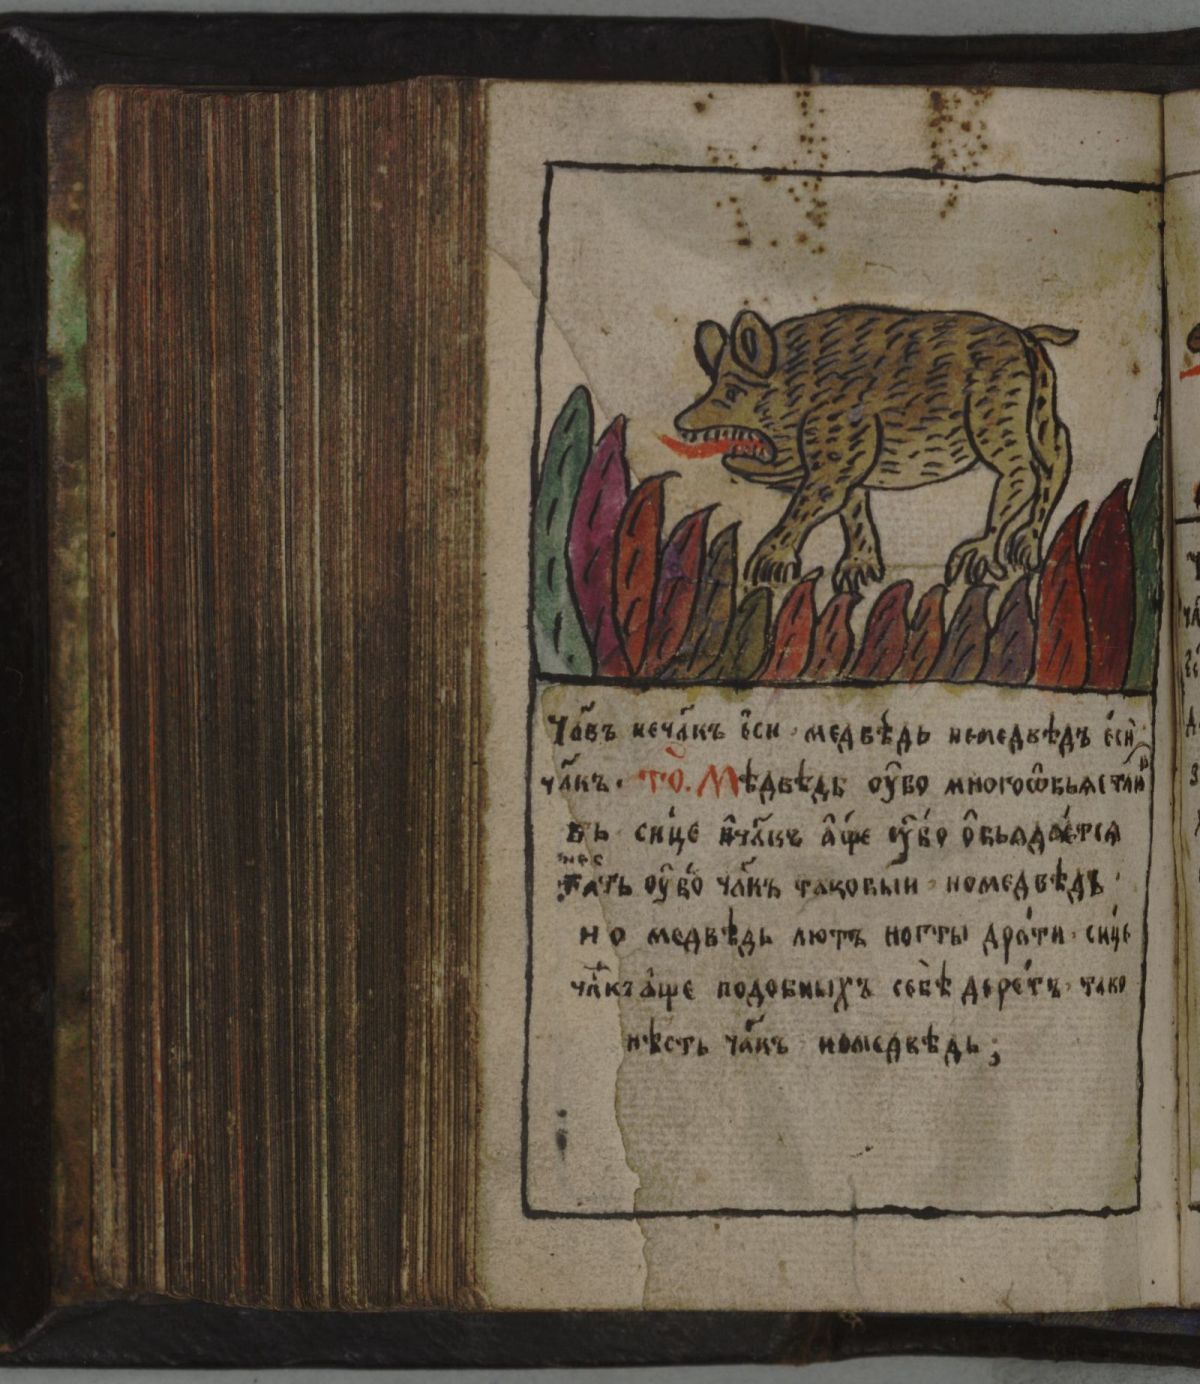 чл҃въ нечл҃къ є҆си · медвѣдь немедвѣдъ є҆сѝ
чл҃къ · То̑. Мѣдвѣдь ᲂу҆̑бо многоѡ҆бьѧстли
въ сице и҆чл҃къ а҆́ще ᲂу҆́бо ѻ҆бьѧдае́тсѧ
нес
тать ᲂу҆́бо́ чл҃къ таковыи · номедвѣдь ·
но медвѣдь лютъ ногты дра́ти · сице
чл҃къ а҆́ще подобныхъ себѣ̀ дере́тъ · тако
нѣсть чл҃къ номедвѣдь ;